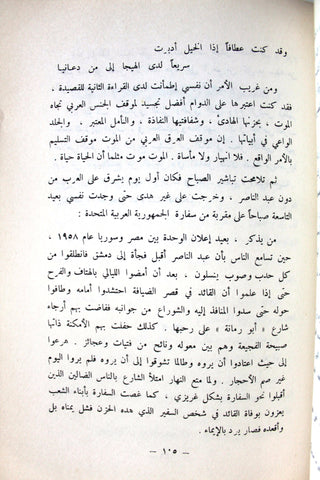 وقد كنت عطافاً إذا الخيل أدبرت
سريعاً لدى الهيجا إلى من دعانيا
ومن غريب الأمر أن نفسي إطمأنت لدى القراءة الثانية للقصيدة ،
فقد كنت اعتبرها على الدوام أفضل تجسيد لموقف الجنس العربي تجاه
الموت ، بحزنها الهادئ ، وشفافيتها النفاذة ، والتأمل المعتبر ، والجلد
الواعي في أبياتها . إن موقف العرق العربي من الموت موقف التسليم
بالأمر الواقع . فلا انهيار ولا مأساة . الموت موت مثلما أن الحياة حياة .
ثم تلامحت تباشير الصباح فكان أول يوم يشرق على العرب من
دون عبد الناصر ، وإذ خرجت على غير هدى حتى وجدت نفسي بعيد
التاسعة صباحاً على مقربة من سفارة الجمهورية العربية المتحدة :
من يذكر ، بعيد إعلان الوحدة بين مصر وسوريا عام ١٩٥٨ ،
حين تسامع الناس بأن عبد الناصر أقبل فجأة إلى دمشق فانطلقوا من
كل حدب وصوب ينسلون ، بعد أن أمضوا الليالي بالهتاف والفرح
حتى إذا علموا أن القائد في قصر الضيافة احتشدوا أمامه وطافوا
حوله حتى سدوا المنافذ إليه والشوراع من جوانبه ففاضت بهم أرجاء
شارع « أبو رمانة » على رحبها . كذلك حفلت بهم الأمكنة ذاتها
صبيحة الفجيعة وهم بين معوله ونائح من فتيات وعجائز . هرعوا
إلى حيث اعتادوا أن يروه وطالما تشوقوا إلى أن يروه فلم يروا اليوم
غير صم الأحجار . ولما متع النهار امتلأ الشارع بالناس الضالين الذين
أقبلوا نحو السفارة بشكل غريزي ، كما غصت السفارة بأبناء الشعب
يعزون بوفاة القائد في شخص السفير الذي هده الحزن فشل يمناه بل
وأقعده فصار يرد بالإيماء .
— ١٠٥ —